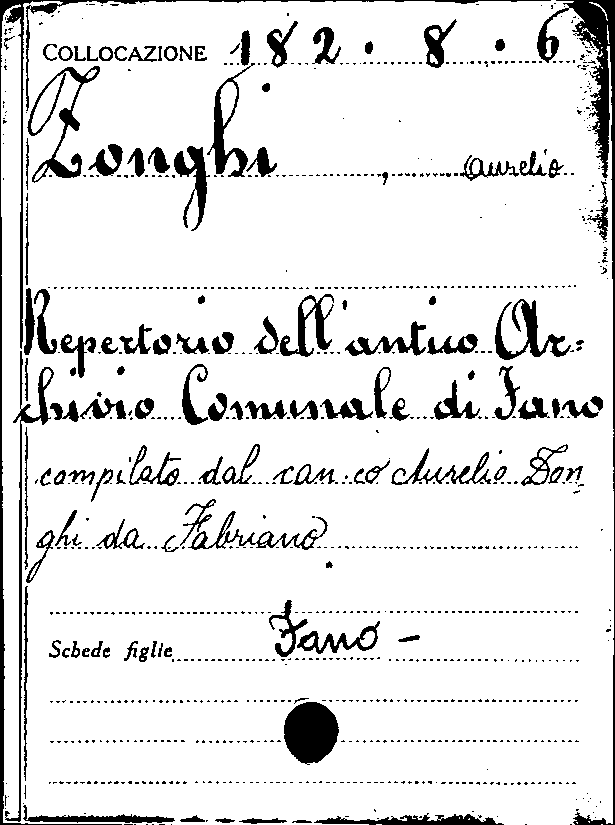 COLLOCAZIONE 182 . 8 . 6
Zonghi , Aurelio
Repertorio dell'antico Ar=
chivio Comunale di Fano
compilato dal can.co Aurelio Zon
ghi da Fabriano.
Schede figlie Fano –